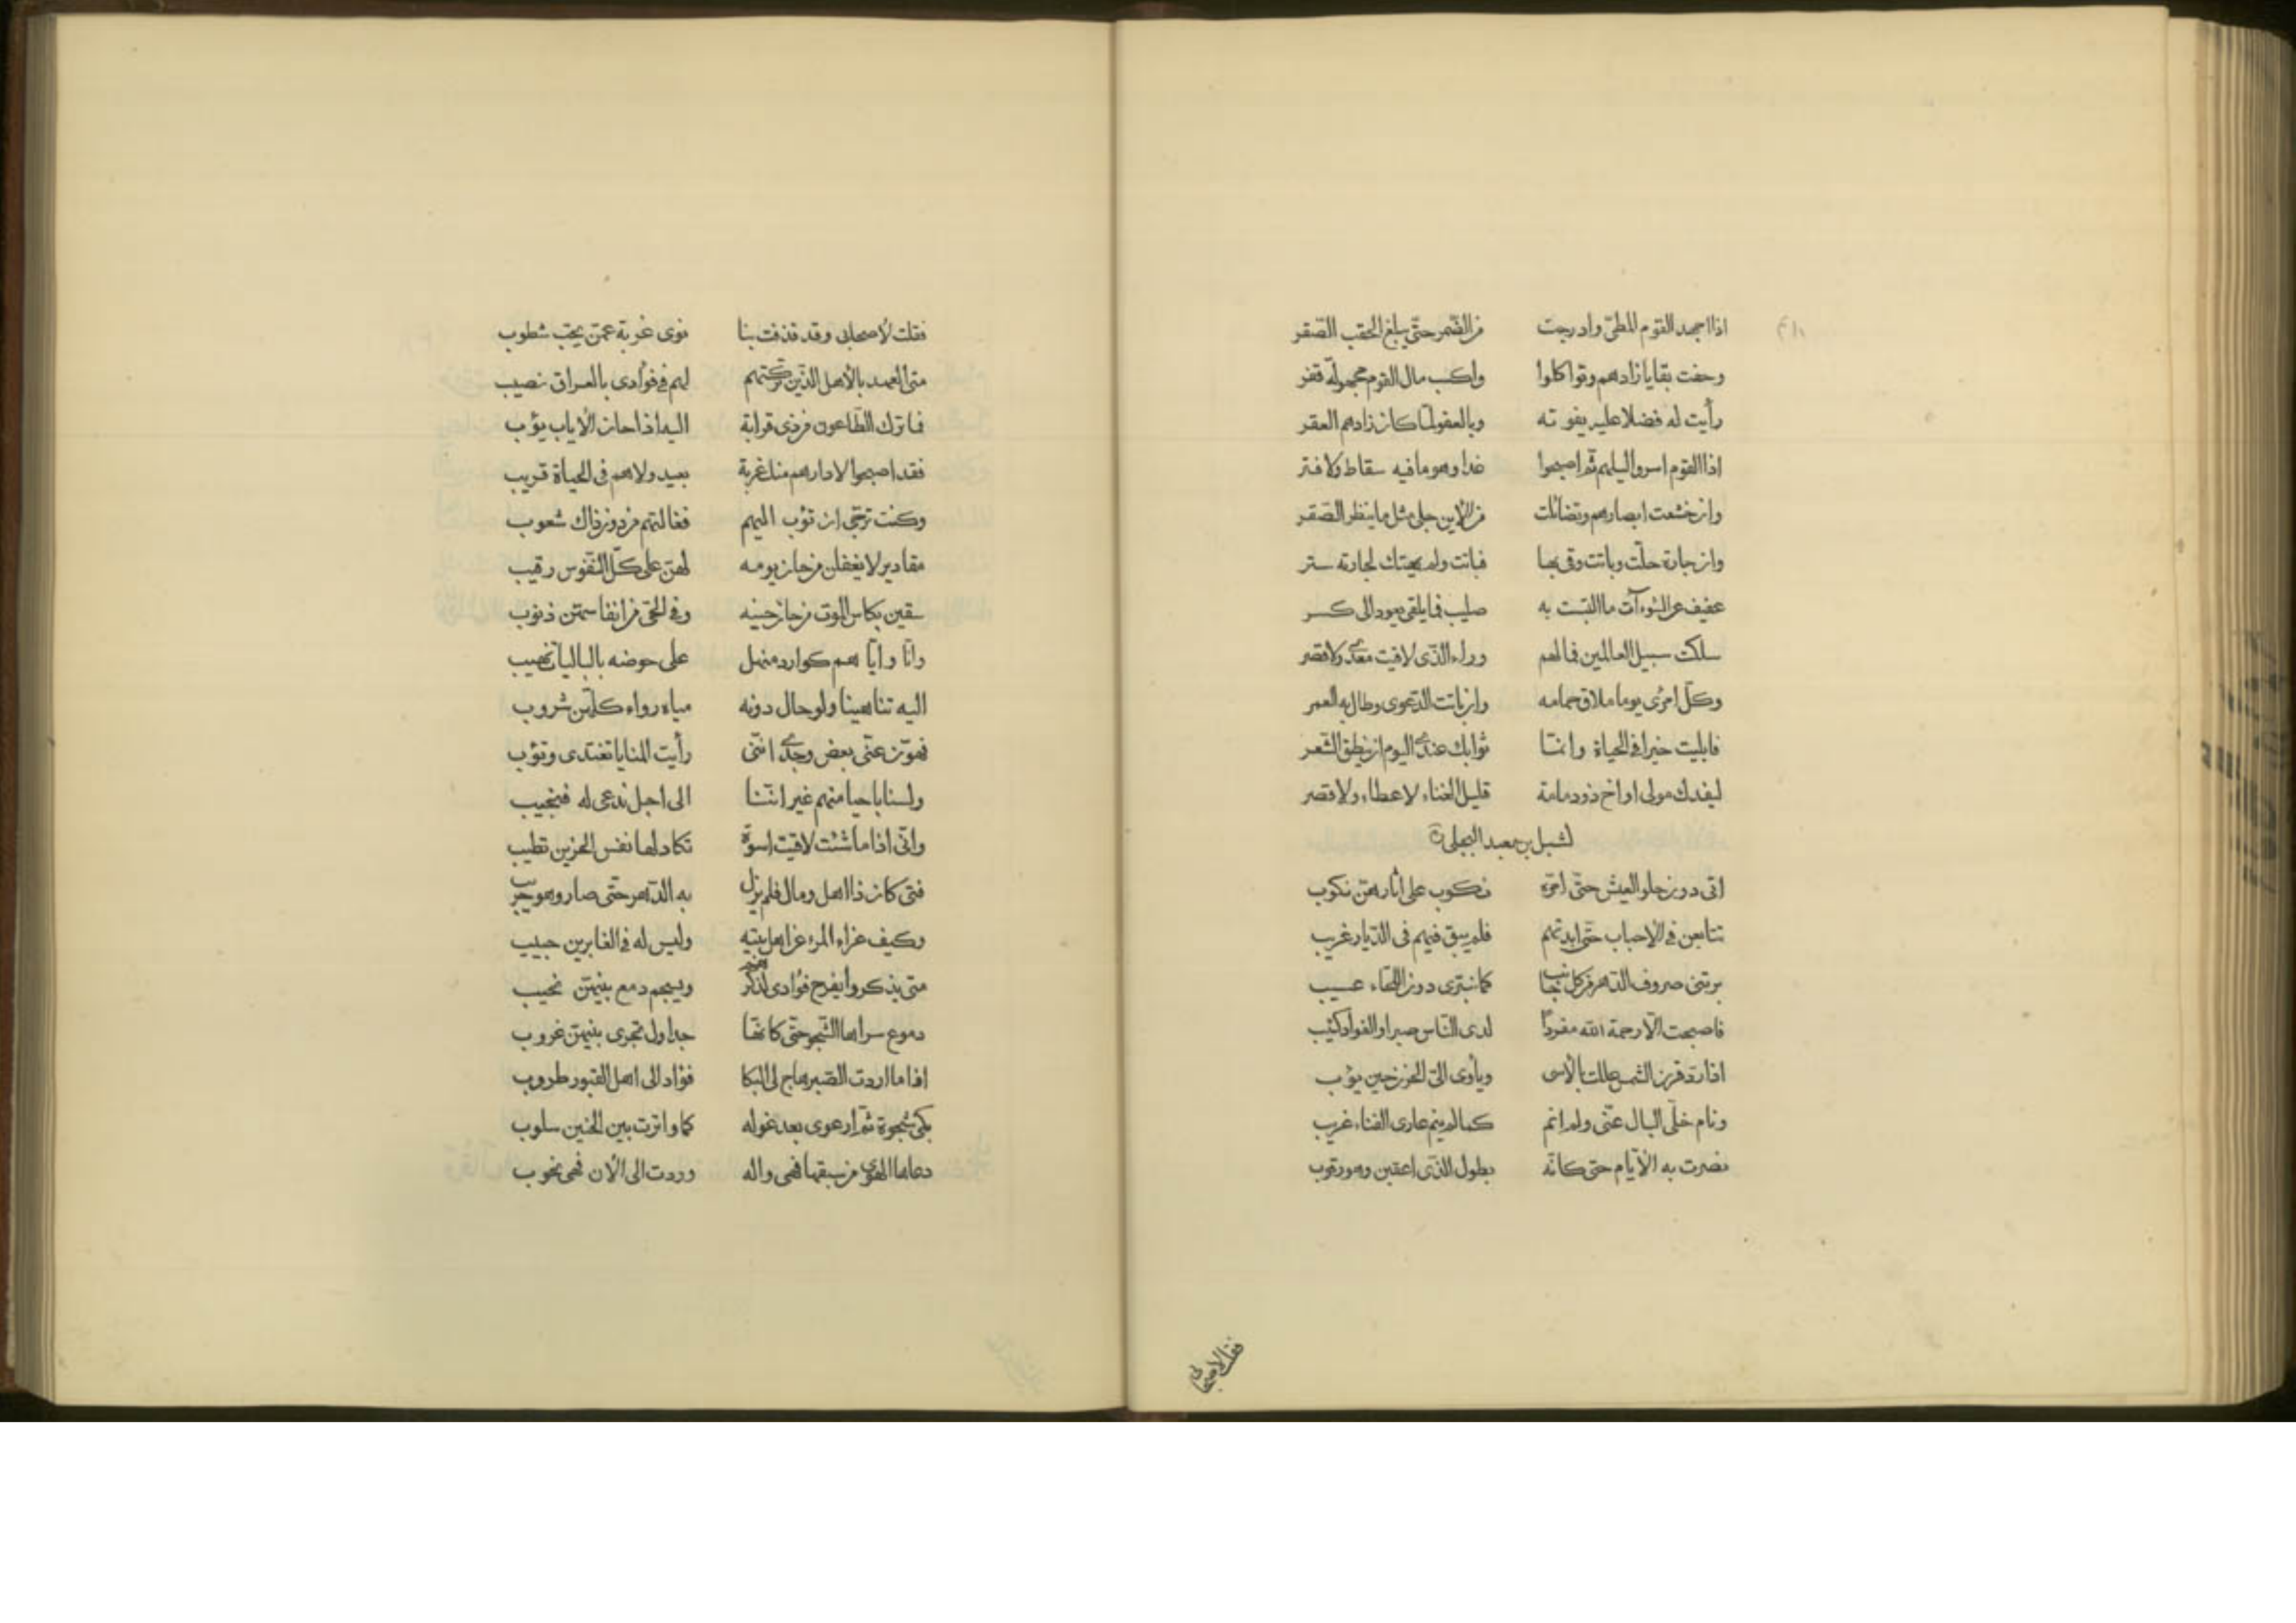 اذا اجهد القوم المطىّ وادرجت من الضّمر حتّى يبلغ الحقب الصّقر
وخفت بقايا زادهم وتواكلوا واكسب مال القوم مجهولة قفر
رأيت له فضلا عليهم يفوته وبالعقر لمّا كان زادهم العقر
اذا القوم اسروا ليلهم ثمّ اصبحوا غدا وهو ما فيه سقاط ولا فتر
وان خشعت ابصارهم وتضائلت من الأين جلى مثل ما ينظر الصّقر
وان جارة حلّت وباتت وفى بها فباتت ولم يهتك لجارته ستر
عفيف عن السّوءآت ما التبست به صليب فما يلقى بعود الى كسر
سلكت سبيل العالمين فما لهم وراء الذّى لاقيت معدى ولا قصر
وكلّ امرئ يوما ملاق حمامه وان باتت الدّعوى وطال به العمر
فابليت خيرا فى الحياة وانّما ثوابك عندى اليوم ان ينطق الشّعر
ليفدك مولى او اخ ذو دمامة قليل الغناء لا عطاء ولا قصر
لشبل بن معبد البجلى
اتى دون حلو العيش حتّى امرّه نكوب على آثارهنّ نكوب
تتابعن فى الاحباب حتّى ابدتهم فلم يبق فيهم فى الدّيار غريب
برتنى صروف الدّهر من كل جانب كما تنبرى دون اللّحاء عسيب
فاصبحت الّا رحمة الله مفردًا لدى النّاس صبرا والفواد كئيب
اذا رذ قرن الشّمس عللت بالأسى ويأوى الىّ الحزن حين يؤب
ونام خلّى البال عنّى ولم انم كما لم ينم عارى الفناء غريب
نصرت به الأيّام حتى كانّه بطول الذّى اعقبن وهو رقوب
فقلت لاصحابى
فقلت لأصحابى وقد قذفت بنا نوى غربة عمّن يحبّ شطوب
متى العهد بالأهل الذّين تركتهم لهم فى فؤادى بالعراق نصيب
فما ترك الطّاعون من ذى قرابة اليه اذا حان الأياب يؤب
فقد اصبحوا لا دارهم منك غربة بعيد ولا هم فى الحياة قريب
وكنت ترجّى ان تؤب اليهم فغالتهم من دون ذاك شعوب
مقادير لا يغفلن من حان يومه لهنّ على كلّ النّفوس رقيب
سقين بكاس الموت من حان حينه وفى الحىّ من انفاسهنّ ذنوب
وانّا وايّاهم كوارد منهل على حوضه بالباليات نهيب
اليه تناهينا ولو حال دونه مياه رواء كلّهن شروب
فهوّن عنّى بعض وجدى انّنى رأيت المنايا تغتدى وتؤب
ولسنا باحيا منهم غير انّنا الى اجل ندعى له فنجيب
وانّى اذا ما شئت لاقيت اسوة تكاد لها نفس الحزين تطيب
فتى كان ذا اهل ومال فلم يزل به الدّهر حتّى صار وهو حريب
وكيف عزاء المرء عن اهل بيته وليس له فى الغابرين حبيب
متى يذكروا يفرح فؤادى لذكرهم ويسجم دمع بينهنّ نحيب
دموع سراها الشّجو حتّى كانّها جداول تجرى بينهنّ غروب
اذا ما اردت الصّبر هاج لى البكا فؤاد الى اهل القبور طروب
بكى شجوة ثمّ ارعوى بعد عوله كما واترت بين الحنين سلوب
دعاها الهوى من سبقها فهى واله وردت الى الأن فهى تحوب